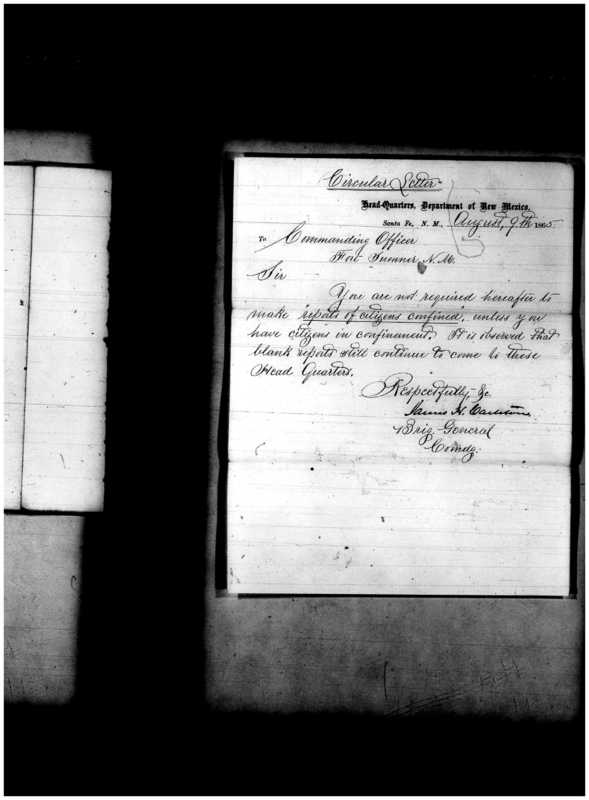 Circular Letter
Head-Quarters, Department of New Mexico,
Santa Fe, N. M., August, 9th 1865
To Commanding Officer
Fort Sumner N.M.
Sir
You are not required hereafter to
make reports of citizens confined, unless you
have citizens in confinement. It is observed that
blank reports still continue to come to these
Head Quarters.
Respectfully, &c
James H. Carleton
Brig. General
Comdg.